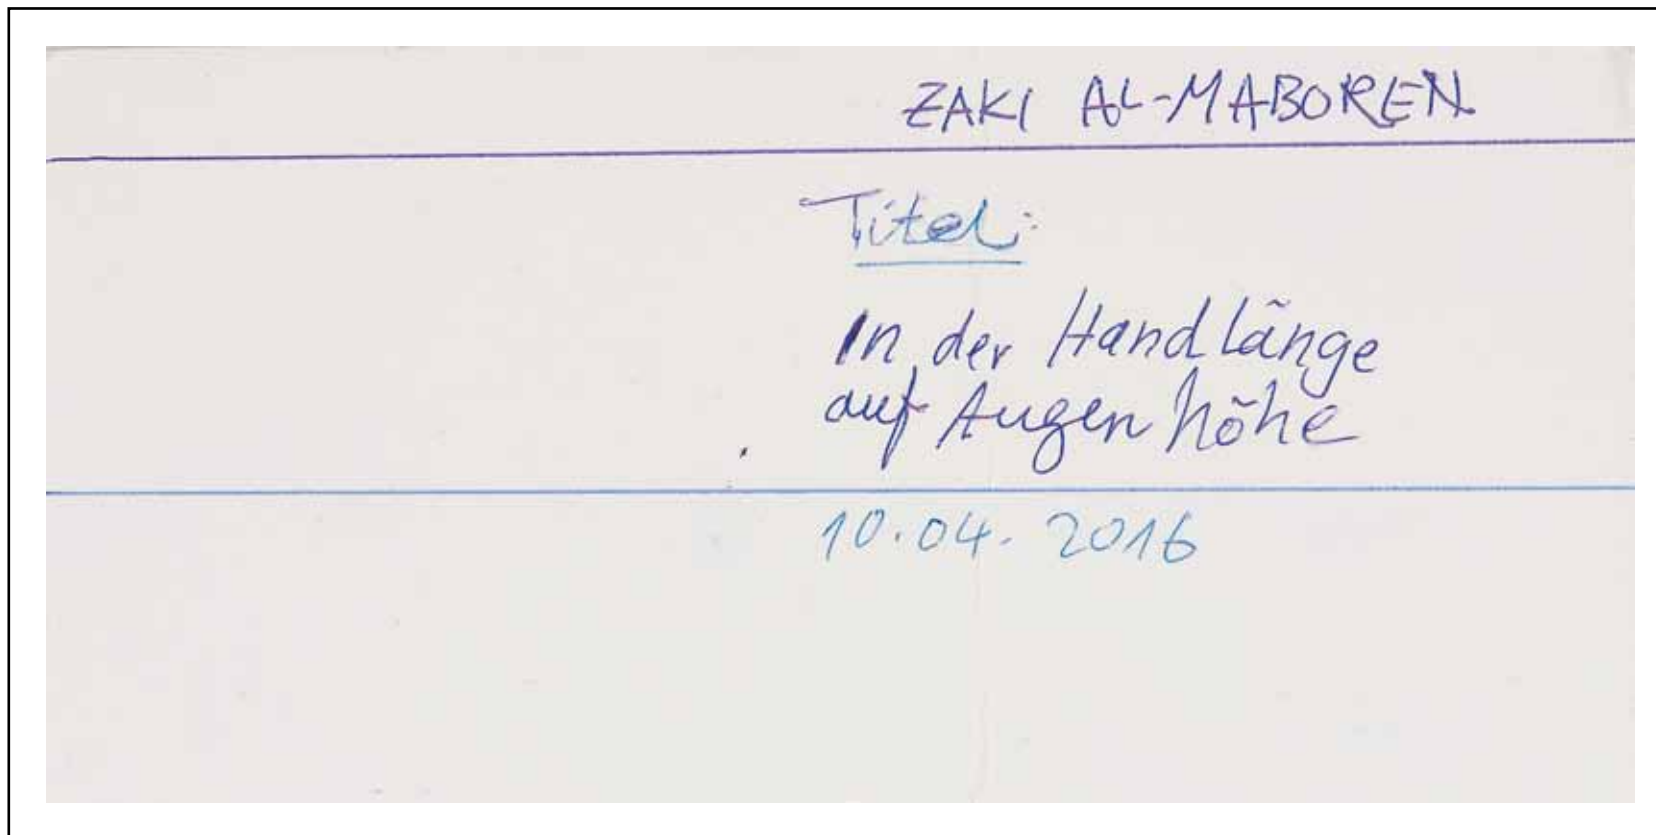 ZAKI AL-MABOREN
Titel:
In der Hand länge
auf Augen höhe
10.04.2016